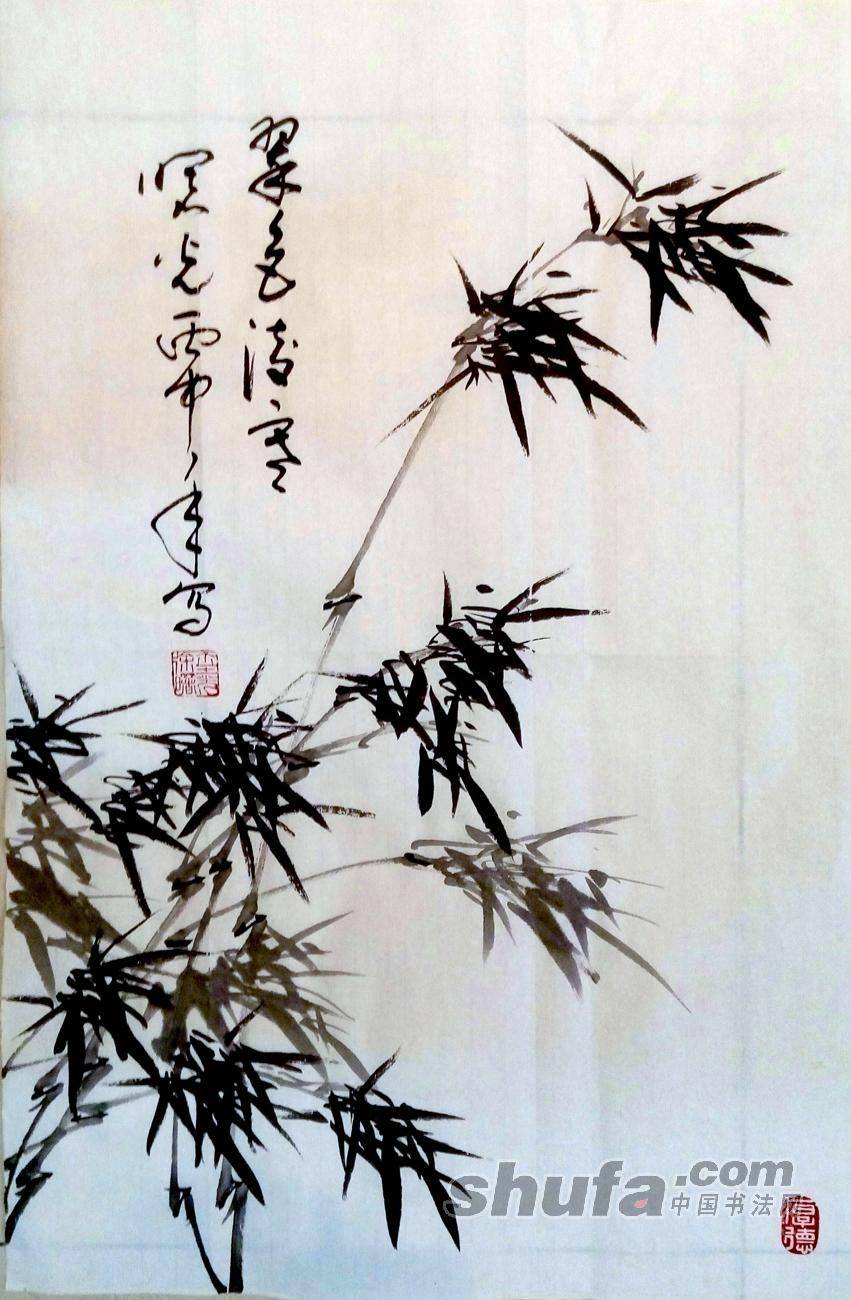 翠色凌寒
曙光丙申年写
厚德
shufa.com
中国书法网